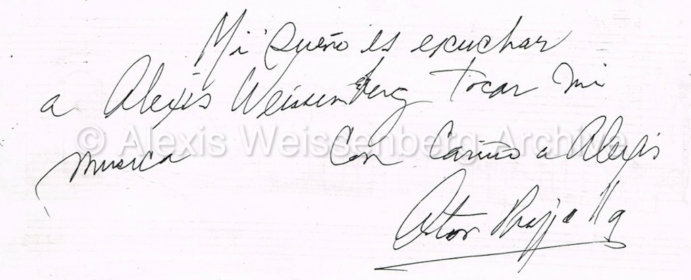 Mi sueño es escuchar
a Alexis Weissenberg tocar mi
musica Con Cariño a Alexis
Astor Piazzolla
© Alexis Weissenberg Archive